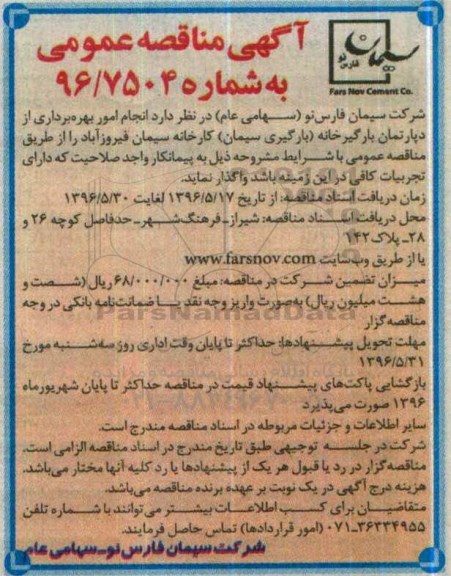 آگهی مناقصه عمومی
به شماره ۹۶/۷۵۰۴
سیمان
فارس نو
Fars Nov Cement Co.
شرکت سیمان فارس‌نو (سهامی عام) در نظر دارد انجام امور بهره‌برداری از
دپارتمان بارگیرخانه (بارگیری سیمان) کارخانه سیمان فیروزآباد را از طریق
مناقصه عمومی با شرایط مشروحه ذیل به پیمانکار واجد صلاحیت که دارای
تجربیات کافی در این زمینه باشد واگذار نماید.
زمان دریافت اسناد مناقصه: از تاریخ ۱۳۹۶/۵/۱۷ لغایت ۱۳۹۶/۵/۳۰
محل دریافت اسناد مناقصه: شیراز_فرهنگ‌شهر_حدفاصل کوچه ۲۶ و
۲۸_ پلاک ۱۴۲
یا از طریق وب‌سایت www.farsnov.com
میزان تضمین شرکت در مناقصه: مبلغ ۶۸/۰۰۰/۰۰۰ ریال (شصت و
هشت میلیون ریال) به‌صورت واریز وجه نقد یا ضمانت‌نامه بانکی در وجه
مناقصه‌گزار
ParsNamadData
مهلت تحویل پیشنهادها: حداکثر تا پایان وقت اداری روز سه‌شنبه مورخ
۱۳۹۶/۵/۳۱
بازگشایی پاکت‌های پیشنهاد قیمت در مناقصه حداکثر تا پایان شهریورماه
۱۳۹۶ صورت می‌پذیرد
سایر اطلاعات و جزئیات مربوطه در اسناد مناقصه مندرج است.
شرکت در جلسه توجیهی طبق تاریخ مندرج در اسناد مناقصه الزامی است.
مناقصه‌گزار در رد یا قبول هر یک از پیشنهادها یا رد کلیه آنها مختار می‌باشد.
هزینه درج آگهی در یک نوبت بر عهده برنده مناقصه می‌باشد.
متقاضیان برای کسب اطلاعات بیشتر می‌توانند با شماره تلفن
۰۷۱_۳۶۳۳۴۹۵۵ (امور قراردادها) تماس حاصل فرمایند.
شرکت سیمان فارس نو_سهامی عام